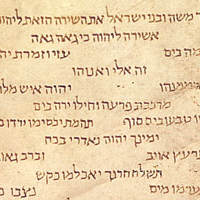 ר משה ובני ישראל את השירה הזאת ליהו
אשירה ליהוה כי גאה גאה
מה בים עזי וזמרת
זה אלי ואנהו
יהוה איש מל
מרכבת פרעה וחילו ירה בים
טבעו בים סוף תהמת יכסימו ירדו
ימינך יהוה נאדרי בכח
תרעץ אויב וברב גאו
תשלח חרנך יאכלמו כקש
ערמו מים נצבו